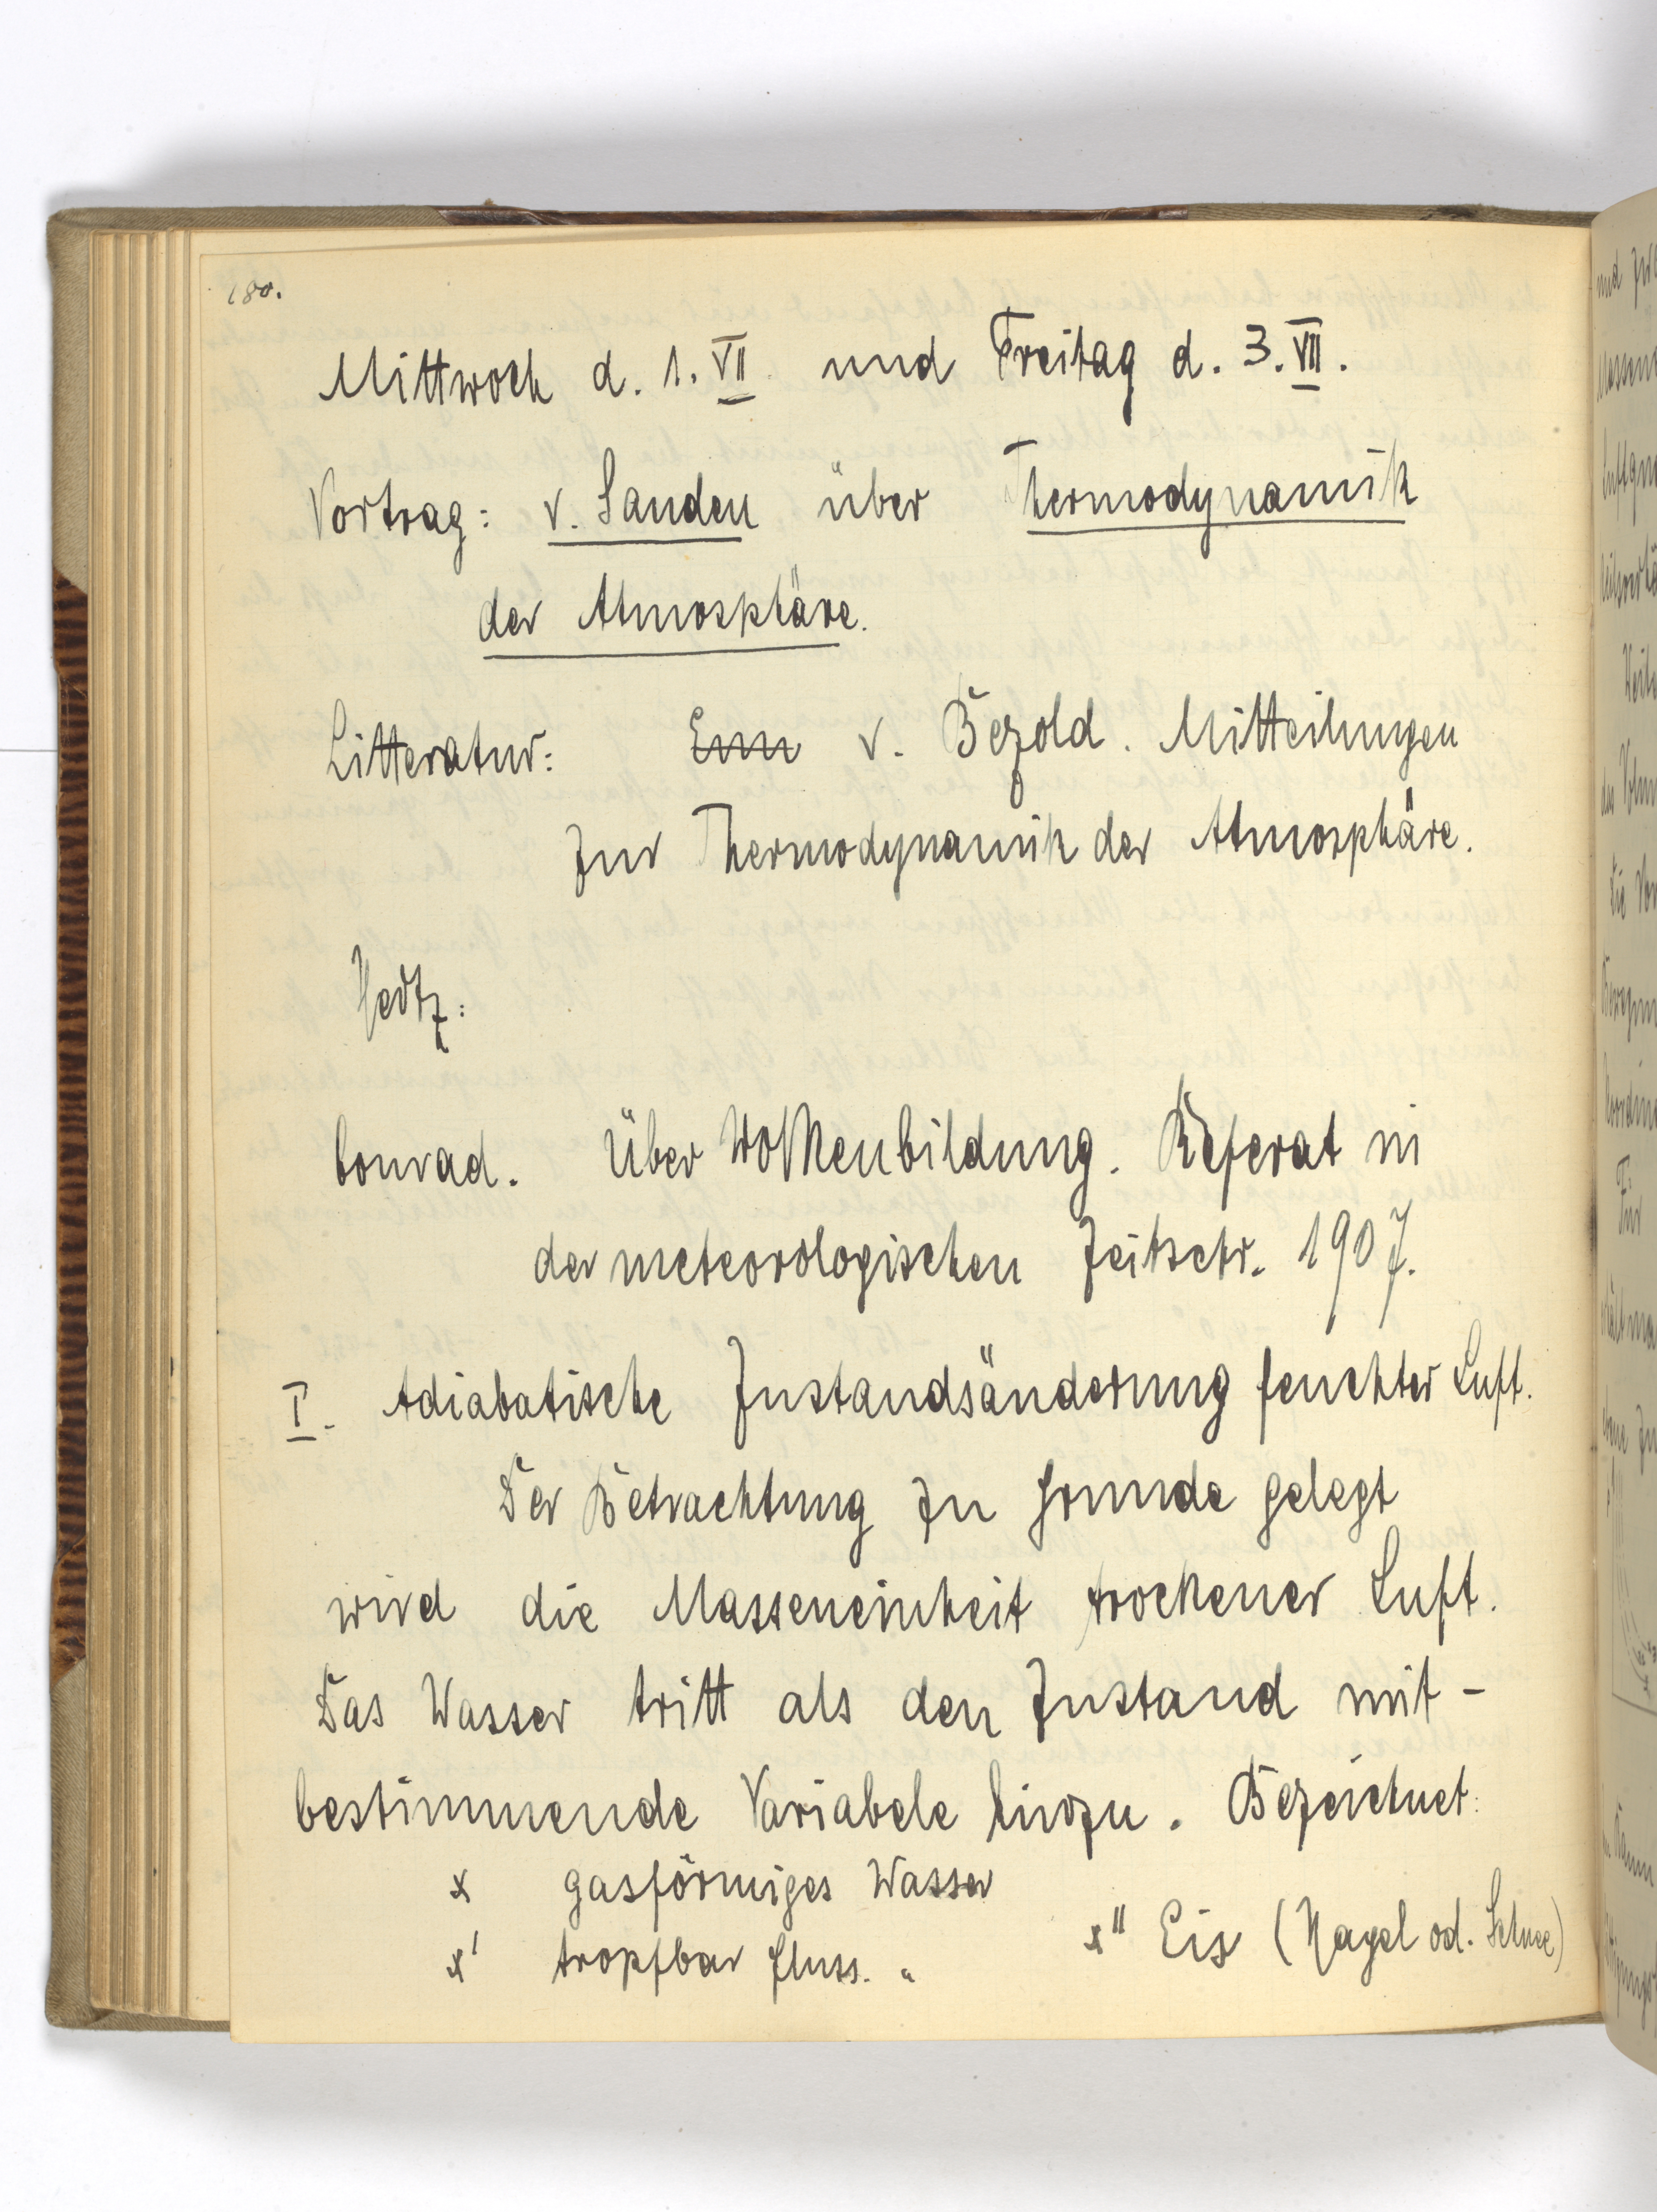 180.
Mittwoch d. 1. VII und Freitag d. 3. VII.
Vortrag: v. Sanden über Thermodynamik
der Atmosphäre.
Litteratur: Em v. Bezold. Mitteilungen
zur Thermodynamik der Atmosphäre.
Hertz:
Conrad. Über Wolkenbildung. Referat in
der meteorologischen Zeitschr. 1907.
I. Adiabatische Zustandsänderung feuchter Luft.
Der Betrachtung zu Grunde gelegt
wird die Masseneinheit trockener Luft.
Das Wasser tritt als den Zustand mit-
bestimmende Variabele hinzu. Bezeichnet:
x gasförmiges Wasser
x' tropfbar fluss. " x" Eis (Hagel od. Schnee)